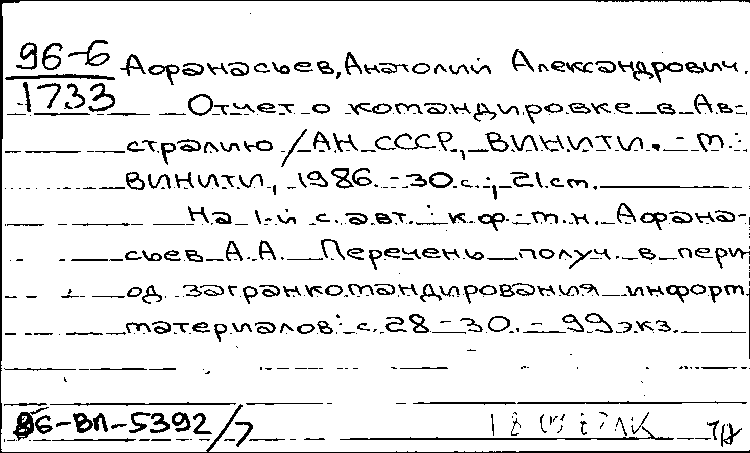 96-6 Афанасьев, Анатолий Александрович.
1733 Отчет о командировке в Ав-
стралию / АН СССР, ВИНИТИ. - М.:
ВИНИТИ, 1986. - 30 с.; 21 см.
На 1-й с. авт.: к.ф.-м.н. Афана-
сьев А.А. Перечень получ. в пери
од загранкомандирования информ.
материалов: с. 28-30. - 99 экз.
86-ВП-5392/7